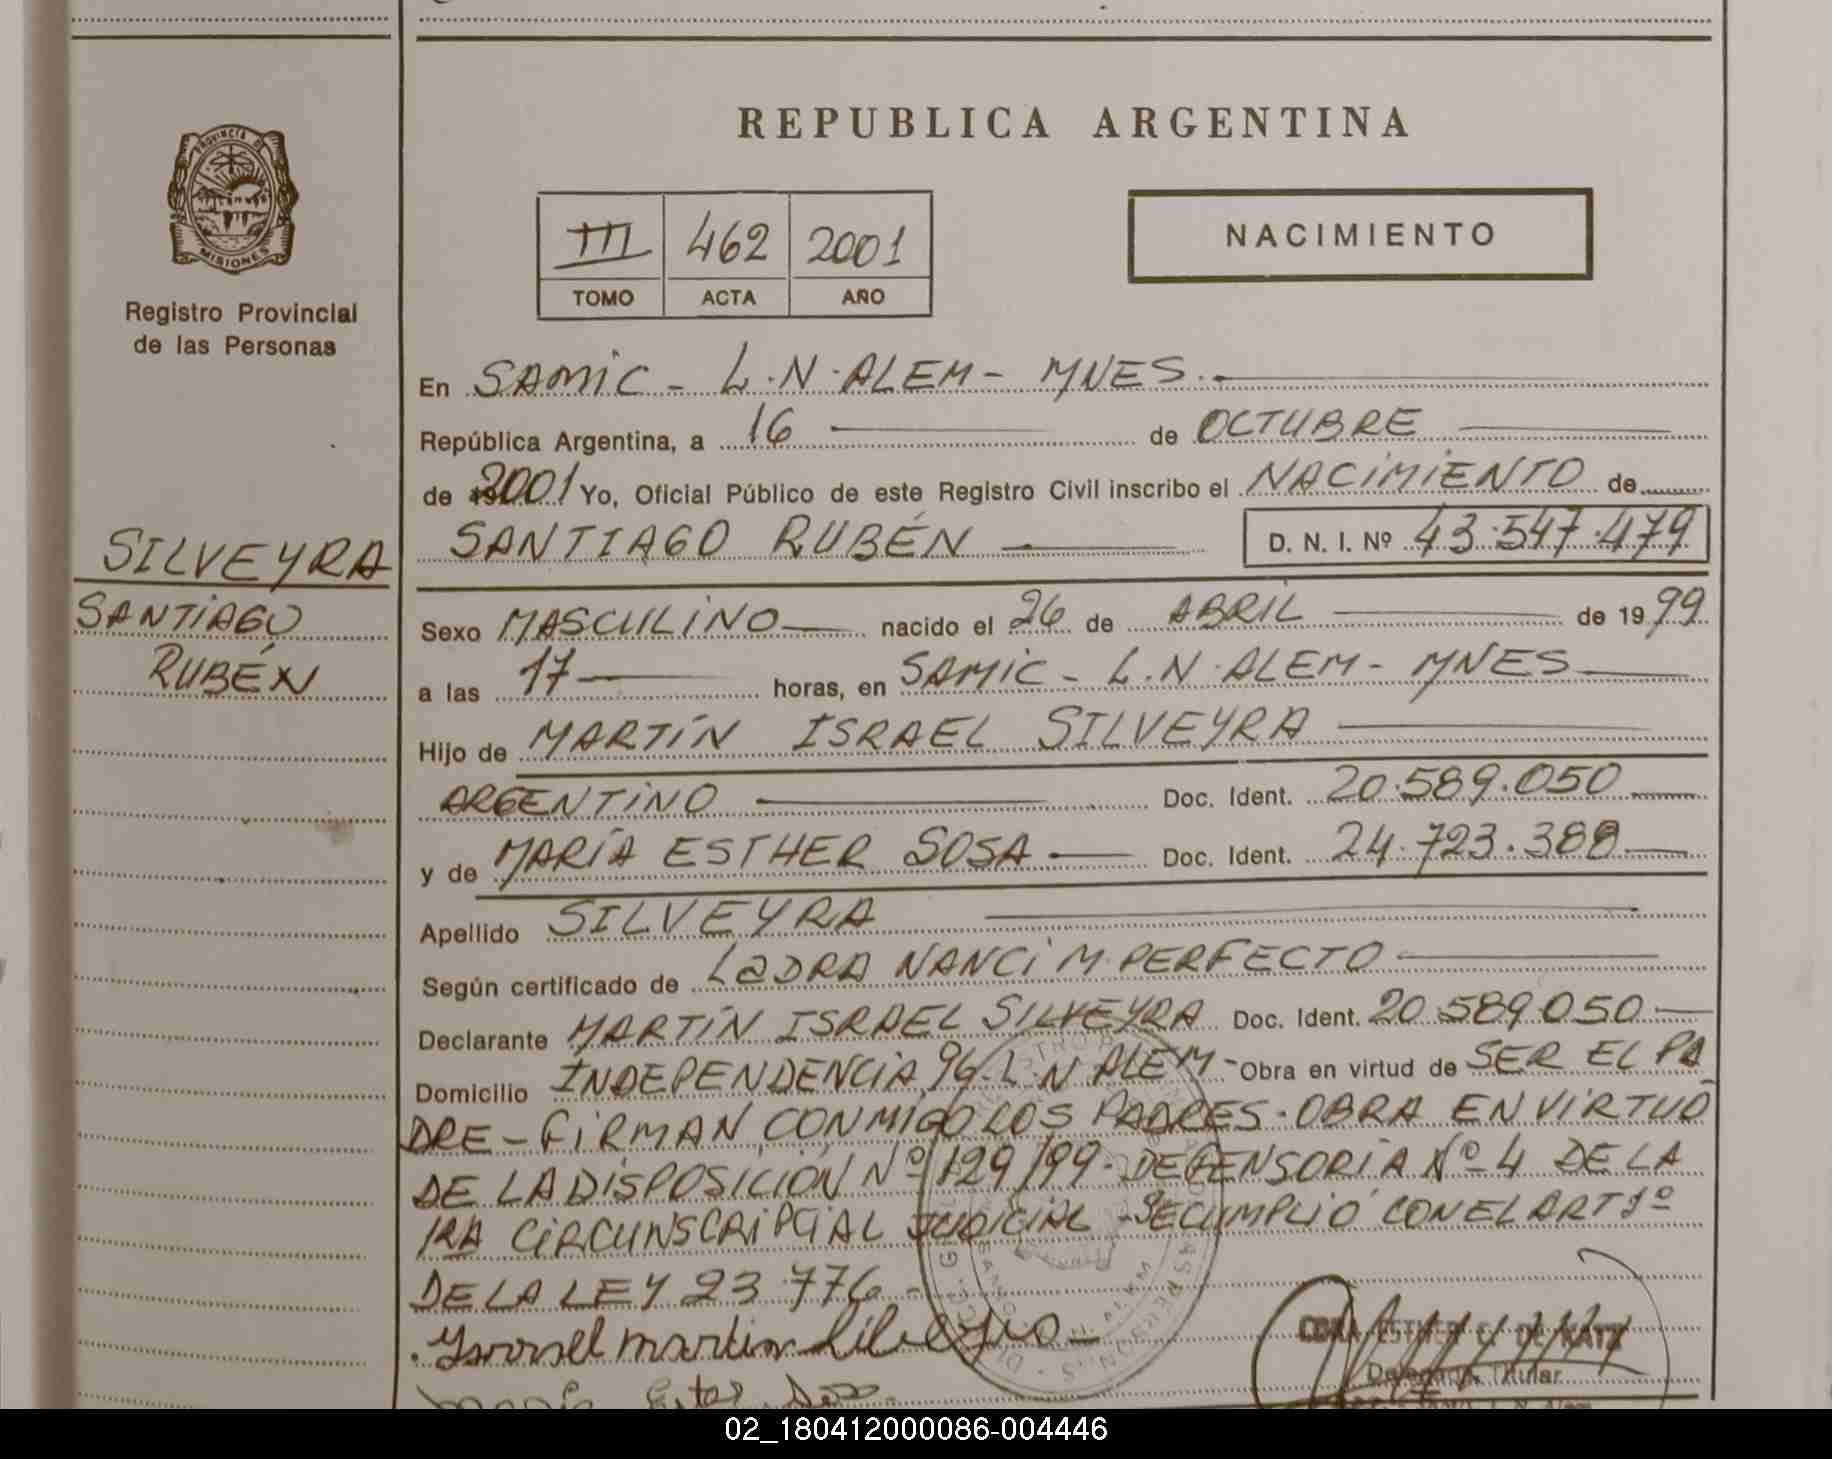 REPUBLICA ARGENTINA
PROVINCIA DE
MISIONES
Registro Provincial
de las Personas
III 462 2001
TOMO ACTA AÑO
NACIMIENTO
En SAMIC - L.N. ALEM - MNES.
República Argentina, a 16 de OCTUBRE
de 2001 Yo, Oficial Público de este Registro Civil inscribo el NACIMIENTO de
SANTIAGO RUBÉN D. N. I. Nº 43.547.479
SILVEYRA
SANTIAGO
RUBÉN
Sexo MASCULINO nacido el 26 de ABRIL de 1999
a las 17 horas, en SAMIC - L.N. ALEM - MNES
Hijo de MARTÍN ISRAEL SILVEYRA
ARGENTINO Doc. Ident. 20.589.050
y de MARÍA ESTHER SOSA Doc. Ident. 24.723.388
Apellido SILVEYRA
Según certificado de LaDRA NANCI M. PERFECTO
Declarante MARTÍN ISRAEL SILVEYRA Doc. Ident. 20.589.050
Domicilio INDEPENDENCIA 96 - L N ALEM - Obra en virtud de SER EL PA
DRE - FIRMAN CONMIGO LOS PADRES - OBRA EN VIRTUD
DE LA DISPOSICIÓN Nº 129/99 - DEFENSORIA Nº 4 DE LA
1RA CIRCUNSCRIPCIAL JUDICIAL - SE CUMPLIÓ CON EL ART 1º
DE LA LEY 23.776 -
martin
Delegada Titular
02_180412000086-004446